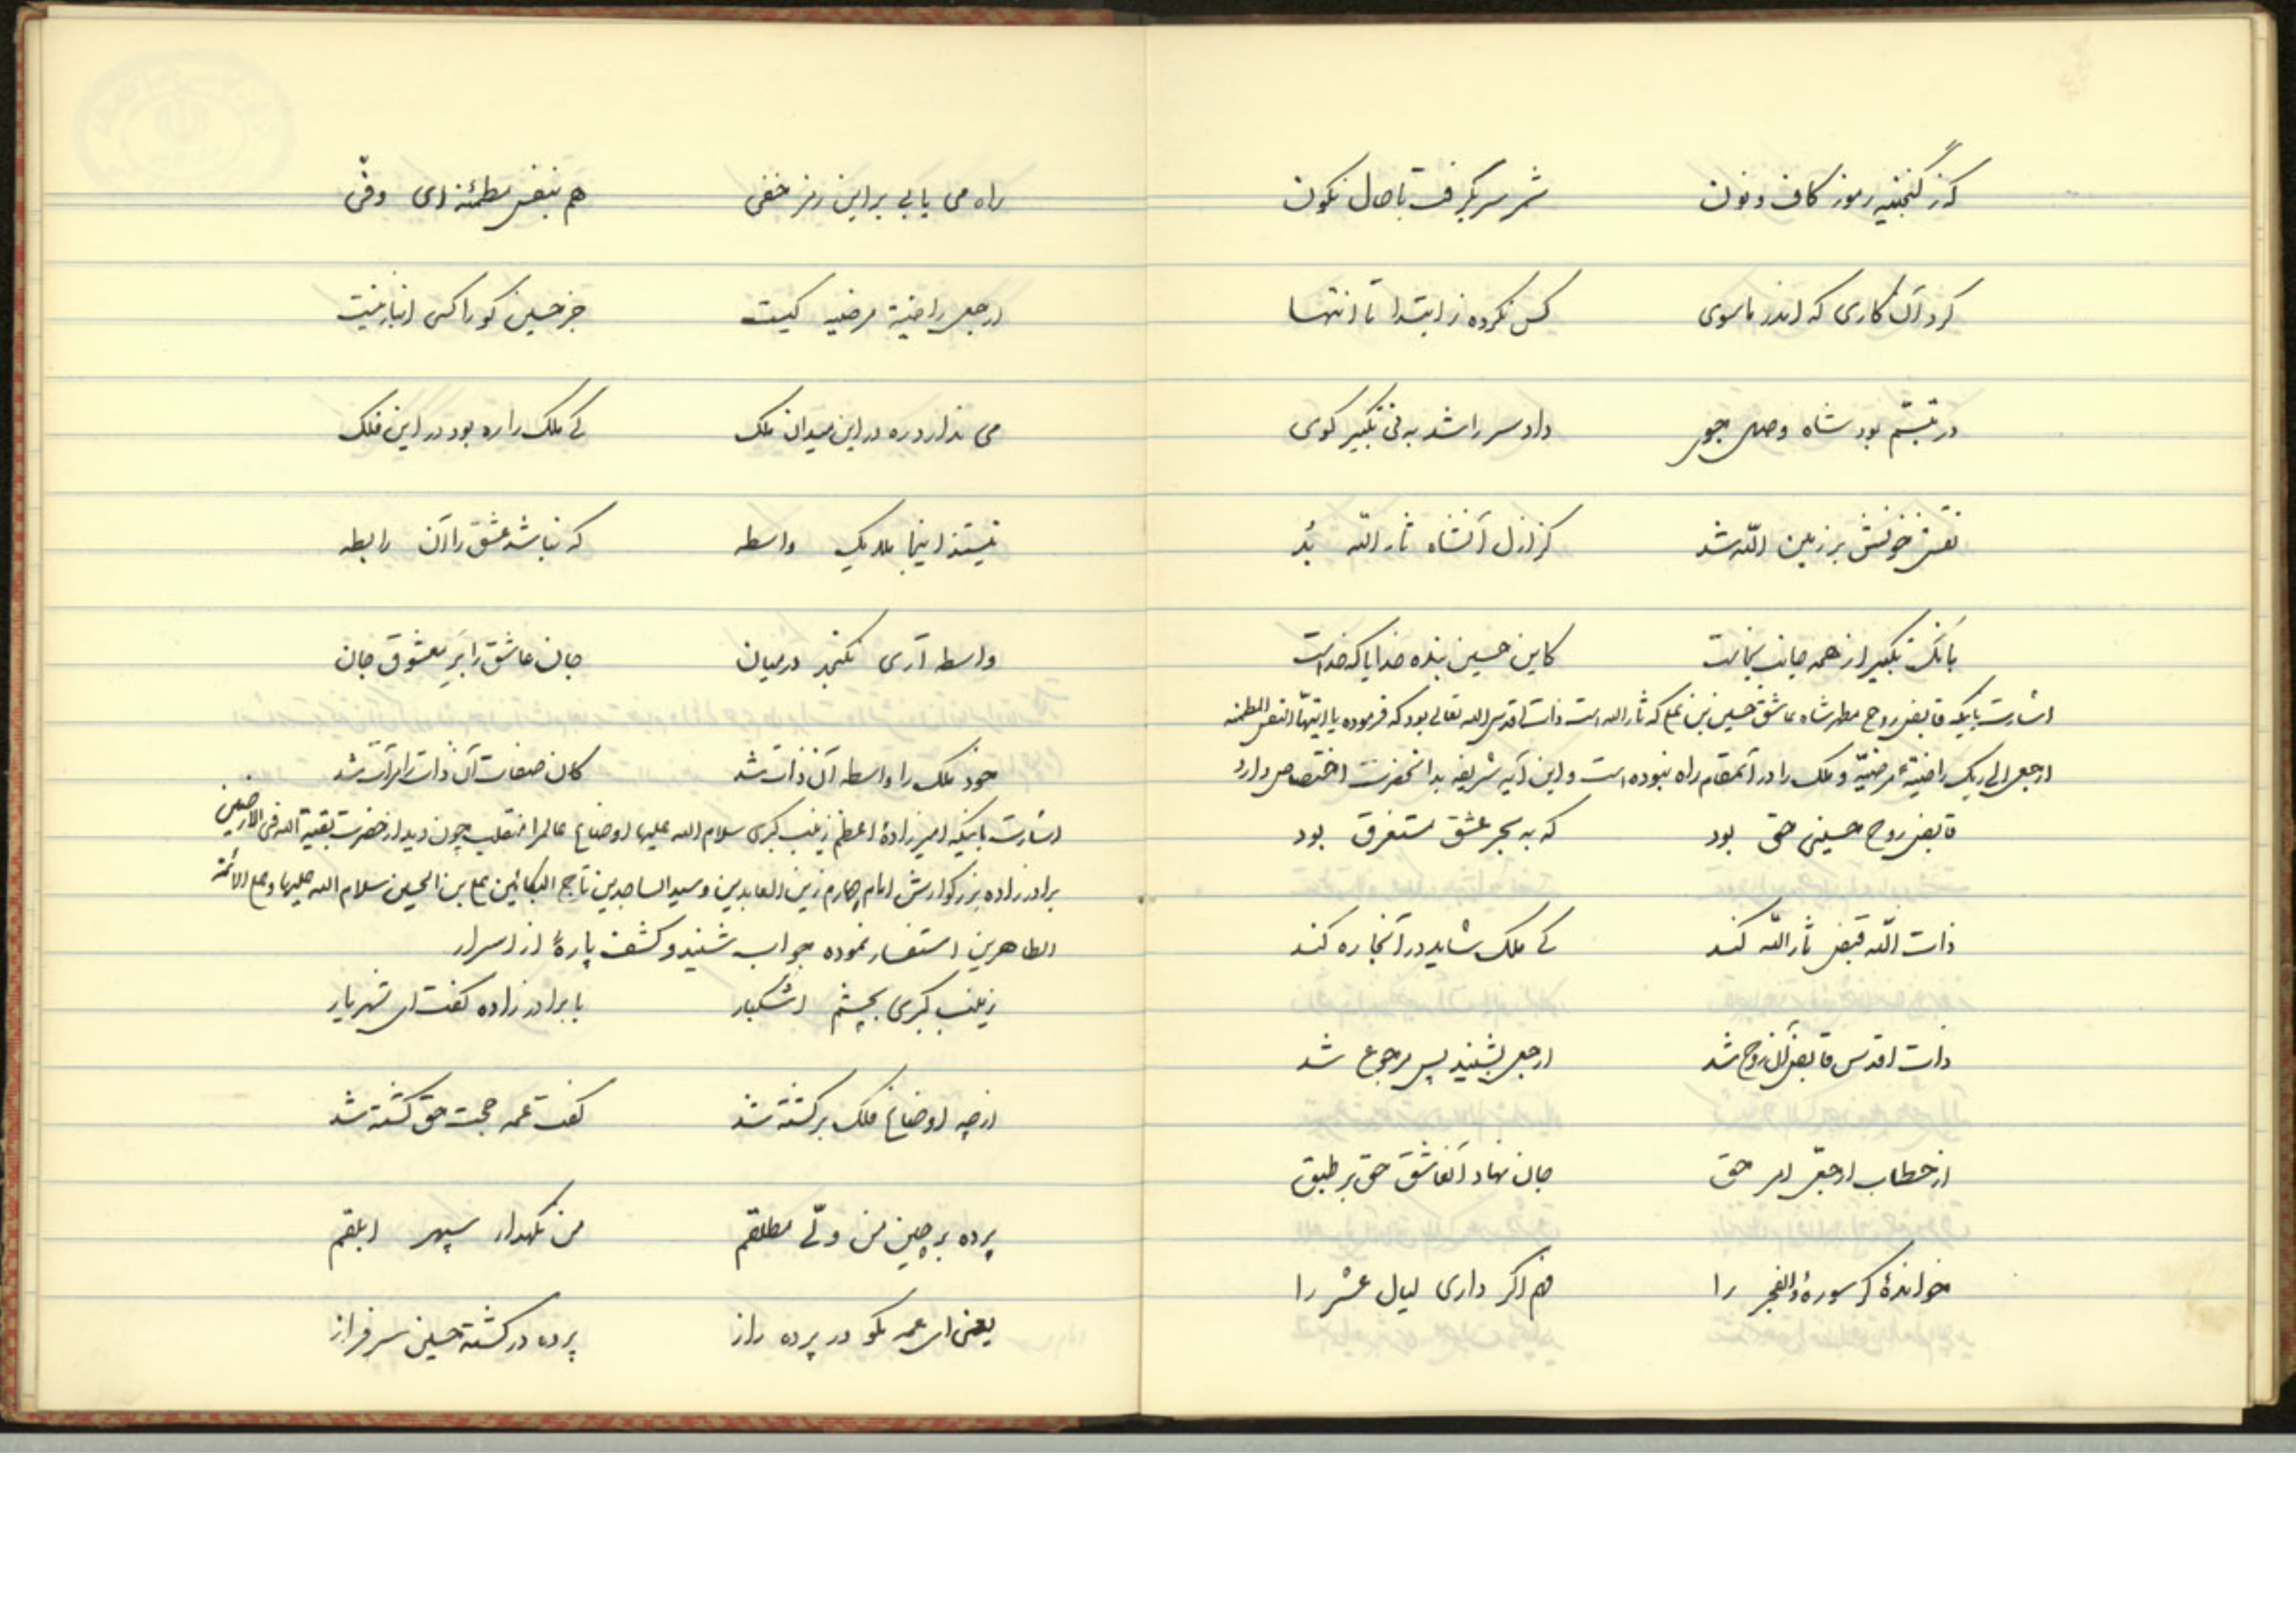 کز گنجینه رموز کاف و نون شمر سر بگرفت تا حال نگون
کرد آن کاری که اندر ماسوی کس نکرده ز ابتدا تا انتها
در تبسّم بود شاه وصل جو داد سر را شد به نی تکبیر گوی
نقش خونش بر زمین اللّه شد کز ازل آنشاه ثار اللّه بُد
بانگ تکبیر از همه جانب بخاست کاین حسین بنده خدا یا که خداست
اشارت باینکه قابض روح مطهر شاه عاشق حسین بن علی که ثار الله است ذات اقدس الله تعالی بود که فرموده یا ایتهّا النفس المطمئنه
ارجعی الی ربک راضیةً مرضیّه و ملک را در آنمقام راه نبوده است و این آیه شریفه بدانحضرت اختصاص دارد
قابض روح حسینی حق بود که به بحر عشق مستغرق بود
ذات اللّه قبض ثار اللّه کند کی ملک شاید در آنجا ره کند
ذات اقدس قابض آن روح شد ارجعی بشنید پس مرجوع شد
از خطاب ارجعی امر حق جان نهاد آنعاشق حق بر طبق
خواندهٔ گر سورهٔ والفجر را فهم اگر داری لیال عشر را
راه می یابی بر این رمز خفی هم بنفس مطمئنه ای وفی
ارجعی راضیة مرضیه کیست جز حسین کو را کسی انباز نیست
می ندارد ره در این میدان ملک کی ملک را ره بود در این فلک
نیست اینجا یک واسطه که نباشد عشق را آن رابطه
واسطه آری نگنجد در میان جان عاشق را بَرِ معشوق جان
خود ملک را واسطه آن ذات شد کان صفات آن ذات را مرآت شد
اشارت باینکه امیرزادهٔ اعظم زینب کبری سلام الله علیها اوضاع عالم را منقلب چون دید از حضرت بقیة الله فی الارضین
برادرزاده بزرگوارش امام چهارم زین العابدین و سید الساجدین تاج البکائین علی بن الحسین سلام الله علیها و علی الائمّة
الطاهرین استفسار نموده جواب شنید و کشف پارهٔ از اسرار
زینب کبری بچشم اشکبار با برادرزاده گفت ای شهریار
از چه اوضاع فلک برگشته شد گفت عمه حجت حق کشته شد
پرده برچین من ولّی مطلقم من نگهدار سپهر ابلقم
یعنی ای عمه بگو در پرده راز پرده در گشته حسین سرفراز